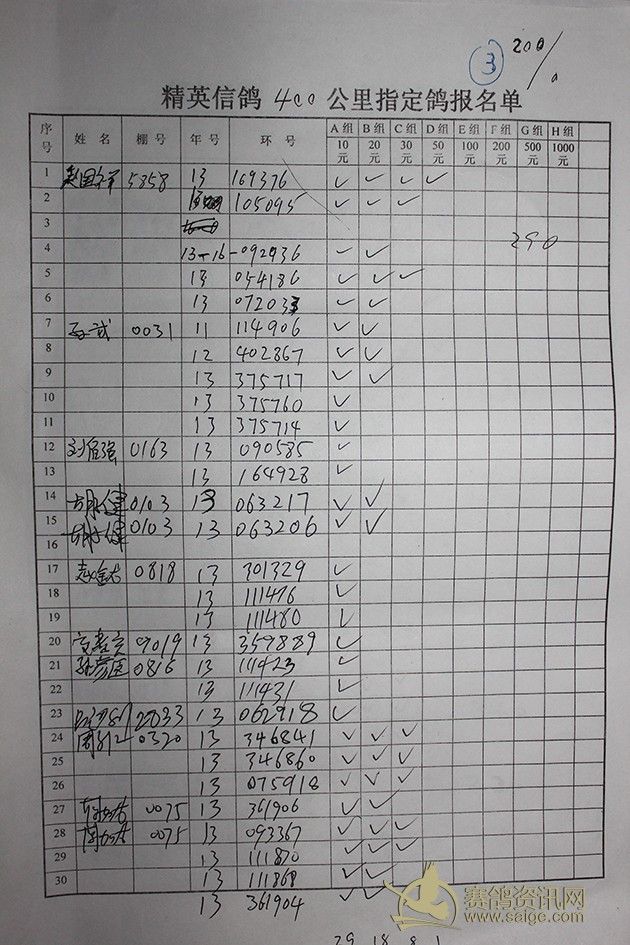 3
200/0
精英信鸽 400 公里指定鸽报名单
序号 姓名 棚号 年号 环号 A组10元 B组20元 C组30元 D组50元 E组100元 F组200元 G组500元 H组1000元
1 5858 13 169376 ✓ ✓ ✓ ✓
2 13 105095 ✓ ✓ ✓
3
290
4 13-16-092936 ✓ ✓
5 13 054186 ✓ ✓ ✓
6 13 072033 ✓ ✓
7 0031 11 114906 ✓ ✓
8 12 402867 ✓ ✓
9 13 375717 ✓ ✓
10 13 375760 ✓
11 13 375714 ✓
12 0163 13 090585 ✓
13 13 164928 ✓
14 胡永健 0103 13 063217 ✓ ✓
15 胡永健 0103 13 063206 ✓ ✓
16
17 0818 13 301329 ✓
18 13 111476 ✓
19 13 111480 ✓
20 9019 13 359889 ✓
21 0816 13 111423 ✓
22 13 111431 ✓
23 13 062918 ✓
24 0320 13 346841 ✓ ✓ ✓
25 13 346860 ✓ ✓ ✓
26 13 075918 ✓ ✓ ✓
27 0075 13 361906 ✓ ✓
28 0075 13 093367 ✓ ✓ ✓
29 13 111870 ✓ ✓ ✓
30 13 111868 ✓ ✓
13 361904 ✓ ✓
29 18 8 1
赛鸽资讯网
www.saige.com